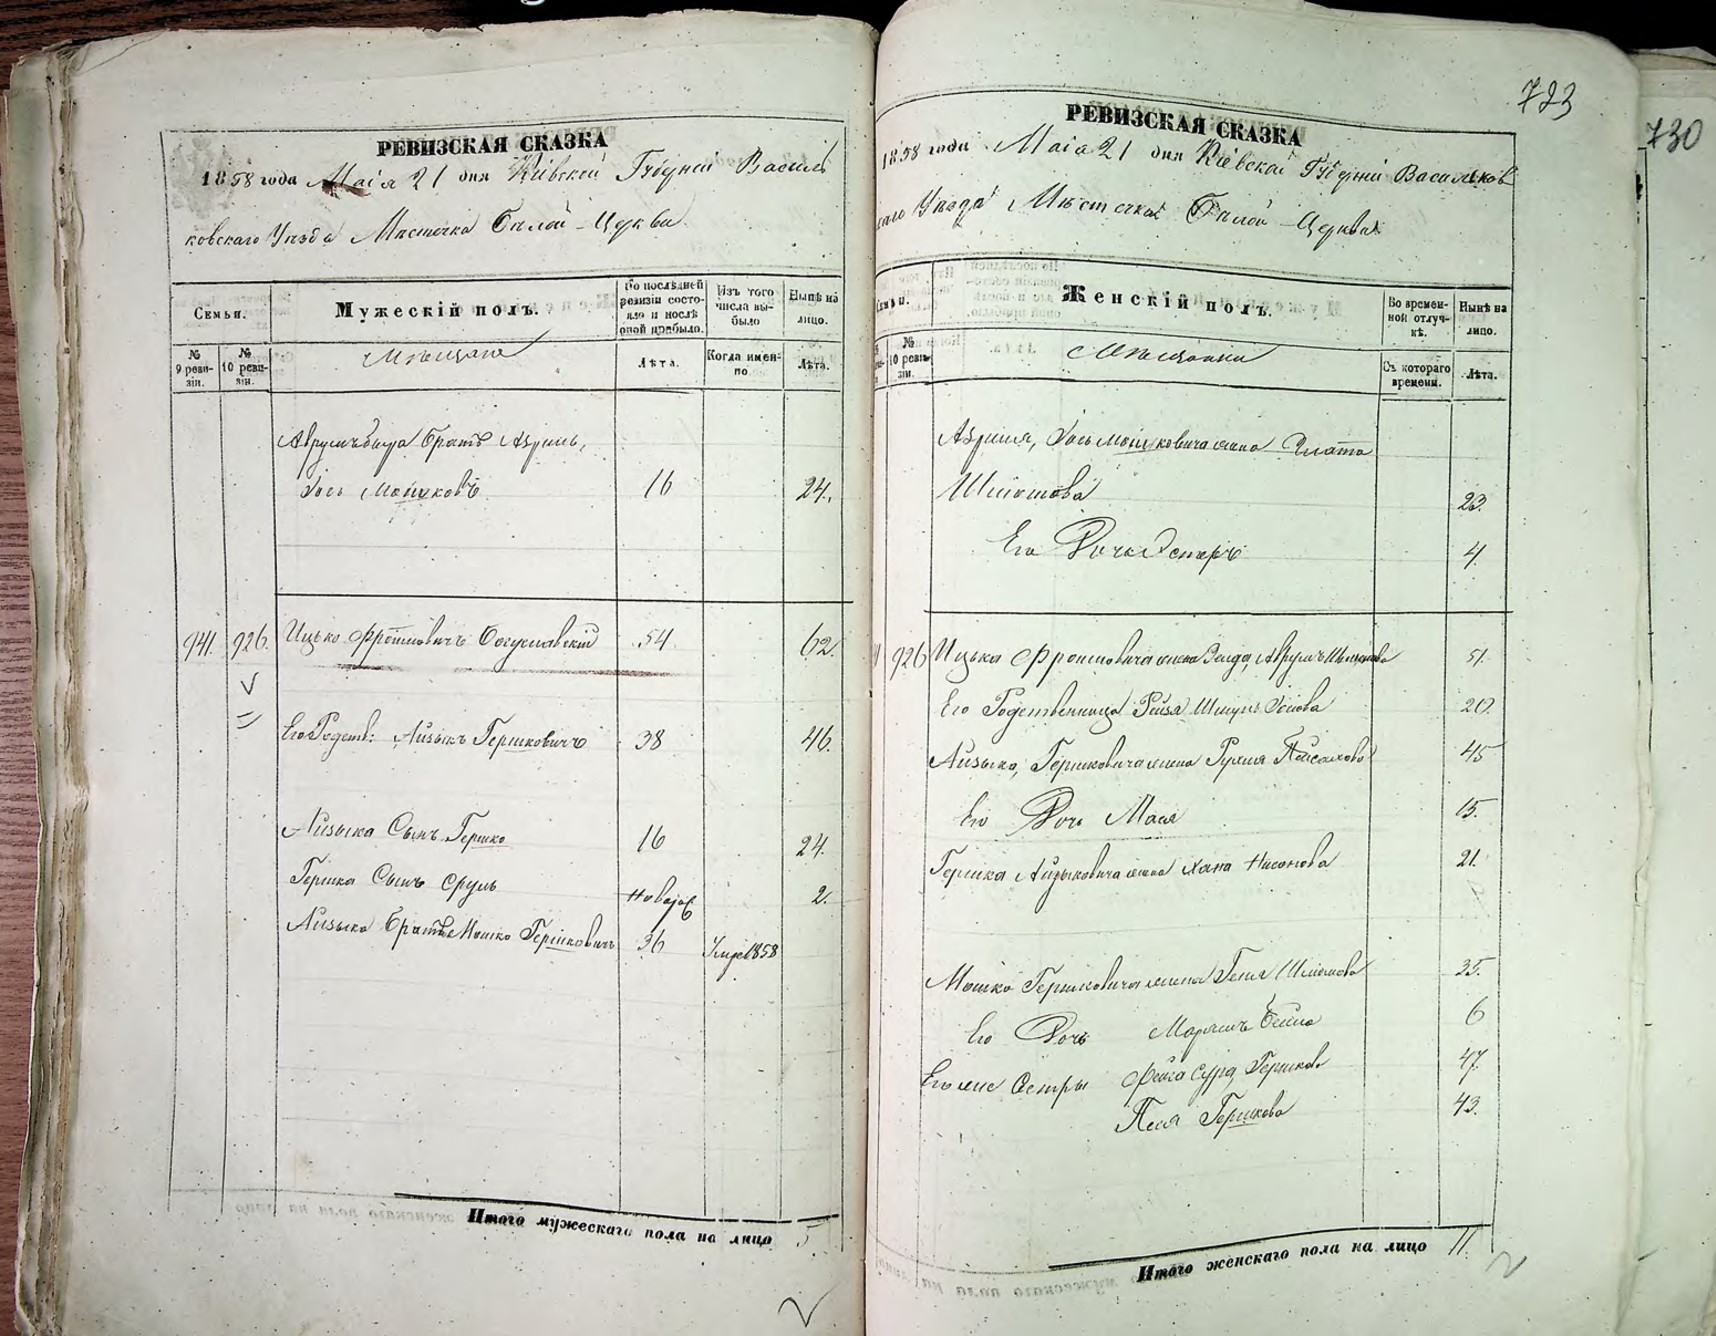 723
730
РЕВИЗСКАЯ СКАЗКА
1858 года Маія 21 дня Кіевской Губерніи Василь
ковскаго Уѣзда Мѣстечка Бѣлой-Церкви
Семьи.
Мужескій полъ.
По послѣдней ревизіи состояло и послѣ оной прибыло.
Изъ того числа выбыло
Нынѣ на лицо.
№ 9 ревизіи.
№ 10 ревизіи.
Мѣщане
Лѣта.
Когда именно
Лѣта.
брать Абрумъ,
Іось Мошковъ 16 24.
941. 926. Ицько Фроимовичъ Богуславскій 54 62.
Его Родств: Айзыкъ Гершковичъ 38 46.
Айзыка Сынъ Гершко 16 24.
Гершка Сынъ Сруль новорож 2.
Айзыка Братъ Мошко Гершковичъ 36 Умре 1858
Итого мужескаго пола на лицо 5.
РЕВИЗСКАЯ СКАЗКА
1858 года Маія 21 дня Кіевской Губерніи Васильков
скаго Уѣзда Мѣстечка Бѣлой-Церкви
Женскій полъ.
Во временной отлучкѣ.
Нынѣ на лицо.
№ 10 ревизіи.
Мѣщанки
Съ котораго времени.
Лѣта.
Іось Мошковича жена Злата
Шмотова 23.
Его Дочь Эстеръ 4.
926 Ицька Фроимовича жена 51.
Его Родственница Рейзя Іосіова 20.
Айзыка, Гершковича жена Рухля Пейсахова 45
Его Дочь Мася 15.
Гершка Айзыковича жена Хана Нисонова 21.
Мошка Гершковича жена Геня 35.
Его Дочь Маріемъ Бейла 6
Его же Сестры Фейга Сура, Гершков 47.
Песя Гершкова 43.
Итого женскаго пола на лицо 11.